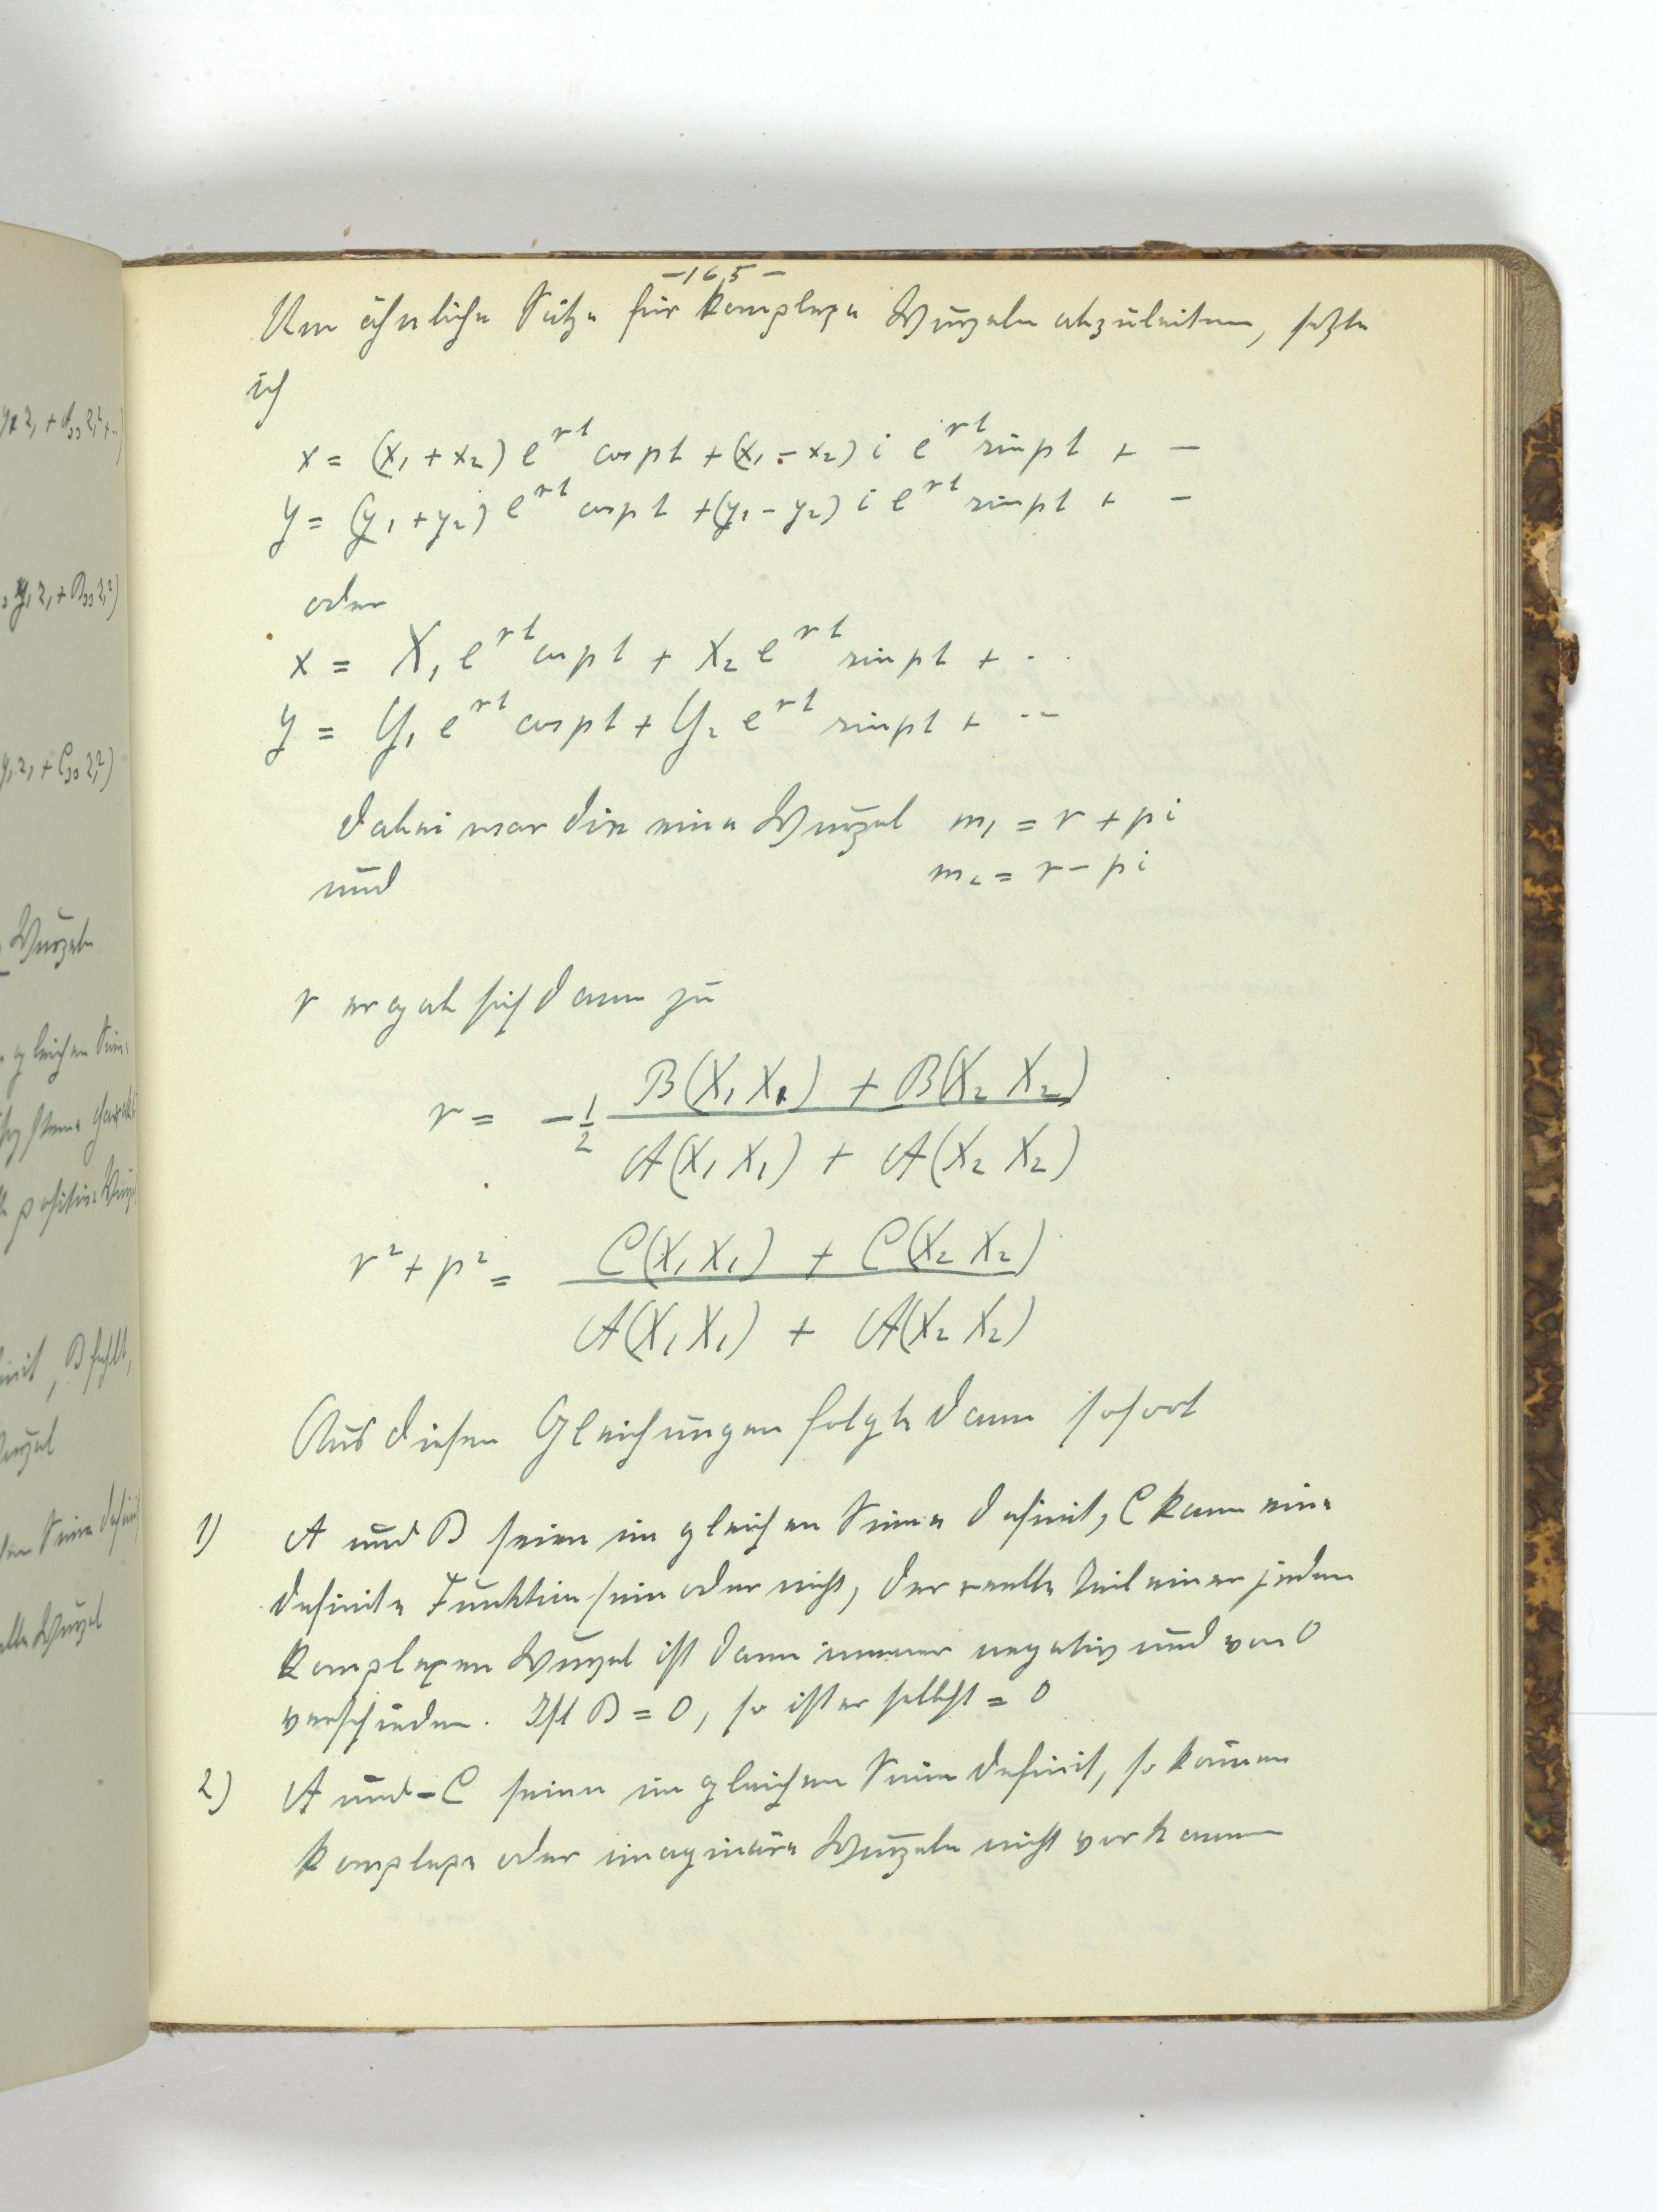 -165-
Um ähnliche Sätze für komplexe Wurzeln abzuleiten, setzte
ich
x = (x₁ + x₂) e^{rt} cos pt + (x₁ - x₂) i e^{rt} sin pt + -
y = (y₁ + y₂) e^{rt} cos pt + (y₁ - y₂) i e^{rt} sin pt + -
oder
x = X₁ e^{rt} cos pt + X₂ e^{rt} sin pt + ..
y = Y₁ e^{rt} cos pt + Y₂ e^{rt} sin pt + --
dabei war die eine Wurzel m₁ = r + pi
und m₂ = r - pi
r ergab sich dann zu
r = -1/2 (B(X₁ X₁) + B(X₂ X₂)) / (A(X₁ X₁) + A(X₂ X₂))
r² + p² = (C(X₁ X₁) + C(X₂ X₂)) / (A(X₁ X₁) + A(X₂ X₂))
Aus diesen Gleichungen folgte dann sofort
1) A und B seien im gleichen Sinne definit, C kann eine
definite Funktion sein oder nicht, der reelle Teil einer jeden
komplexen Wurzel ist dann immer negativ und von 0
verschieden. Ist B = 0, so ist er selbst = 0
2) A und -C seien im gleichen Sinne definit, so können
komplexe oder imaginäre Wurzeln nicht vorkommen